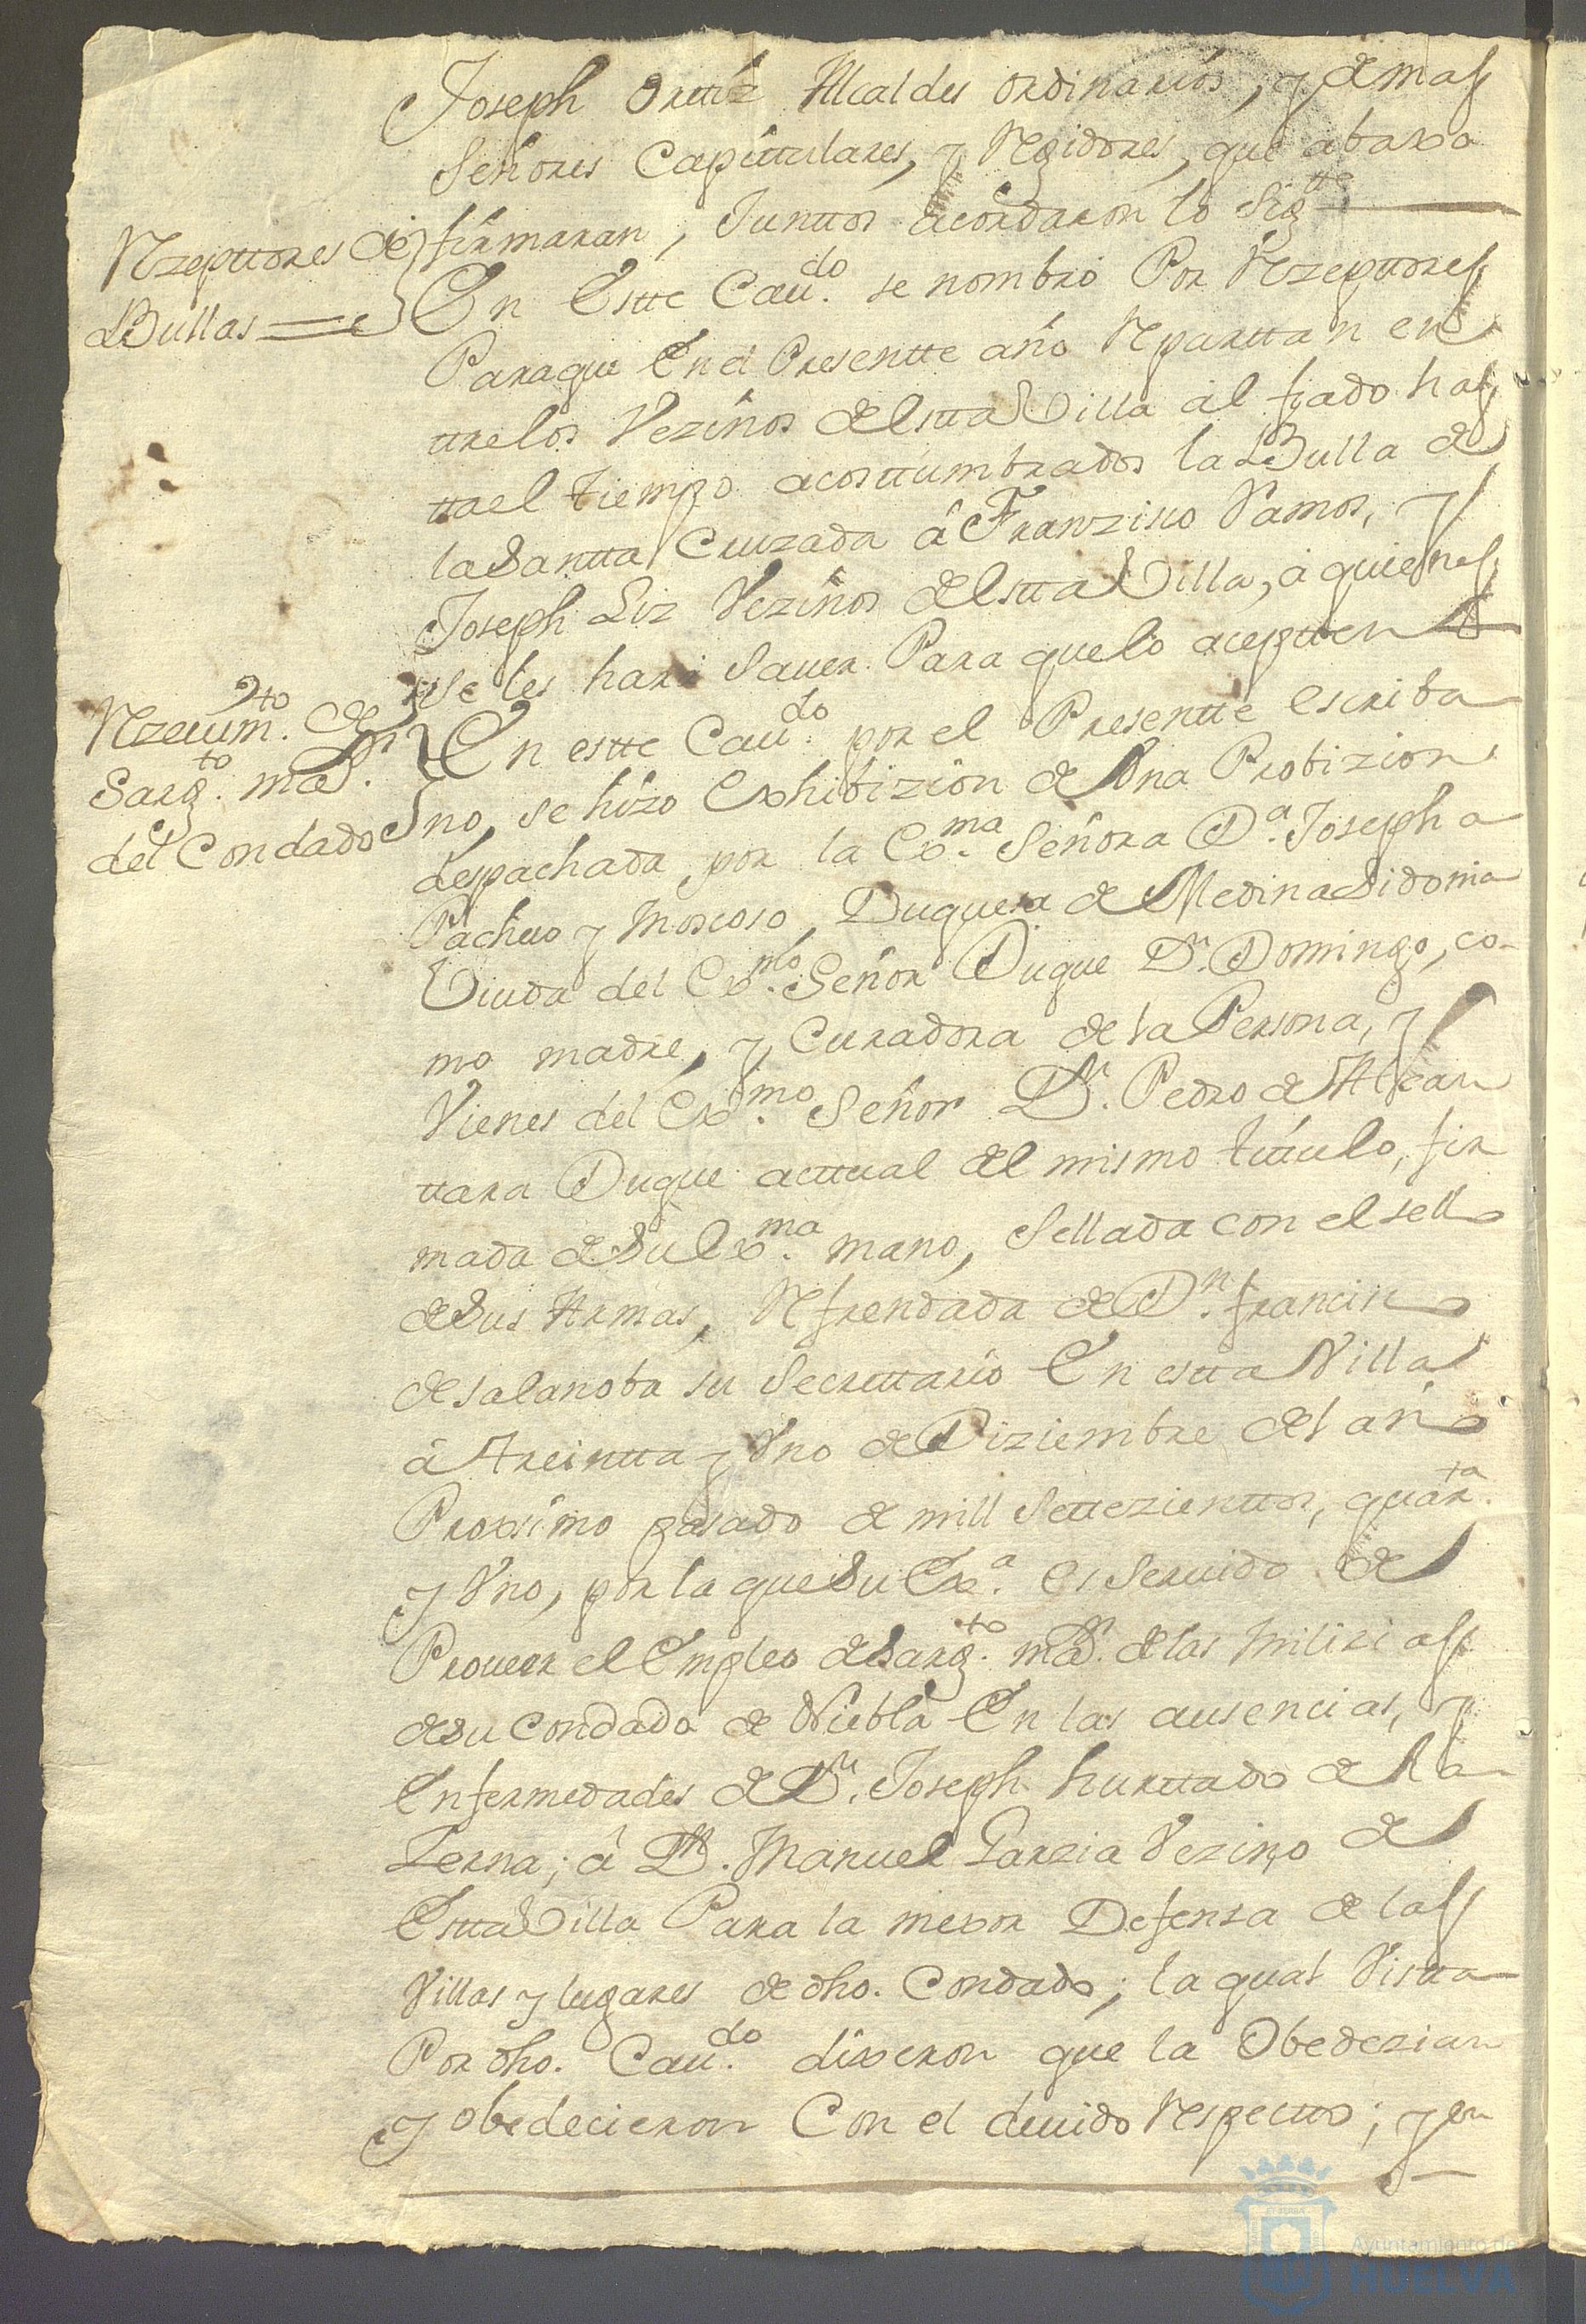 Joseph Orttiz Alcaldes ordinarios, y demas
Señores Capittulares, y Rejidores, que abaxo
firmaran, Junttos acordaron lo Sigtte
Rzepttores de
Bullas
En Estte Caudo. se nombro Por Rzepttores
Paraque En el Presentte año Reparttan en
ttrelos Vezinos de Estta Villa al fiado has
ttael tiempo acosttumbrados la Bulla de
la Santta Cruzada â Franzisco Ramos, y
Joseph Liz Vezinos de Estta Villa, a quienes
se les hara Sauer Para quelo acepten
Rzeuimto. de
Sargto. mor.
del Condado
En estte Caudo. por el Presentte escriba
no, se hizo Exhibizion de Vna Probizion
despachada por la Exma. Señora Da. Josepha
Pacheco y Moscoso, Duquesa de Medinasidonia
Viuda del Exmo. Señor Duque Dn. Domingo, co-
mo madre, y Curadora de la Persona, y
Vienes del Exmo. Señor Dn. Pedro de Alcan
ttara Duque acttual del mismo tittulo, fir
mada de Su Exma. mano, Sellada con el sello
de Sus Armas, Refrendada de Dn. francisco
de salanoba su Secrettario En estta Villa
â Treintta y Vno de Diziembre del año
Proxsimo pasado de mill Settezienttos, quarta.
y Vno, por la que Su Exa. es Seruido de
Proueer el Empleo de Sargto. mor. de las Milicias
de su Condado de Niebla En las ausencias, y
Enfermedades de Dn. Joseph hurttado de la
Zerna; â Dn. Manuel Garzia Vezino de
Estta Villa Para la mexor Defensa de las
Villas y lugares de dho. Condado; la qual Vistta
Por dho. Caudo. dixeron que la Obedezian
y obedecieron Con el deuido Respectto; y en
Ayuntamiento de
HUELVA